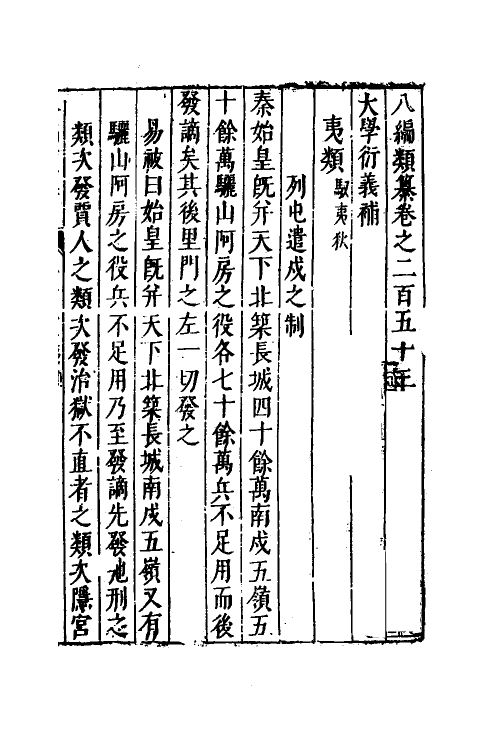 八編類纂卷之二百五十五
大學衍義補
夷類馭夷狄
列屯遣戍之制
秦始皇旣并天下北築長城四十餘萬南戍五嶺五
十餘萬驪山阿房之役各七十餘萬兵不足用而後
發謫矣其後里門之左一切發之
易祓曰始皇旣并天下北築長城南戍五嶺又有
驪山阿房之役兵不足用乃至發謫先發弛刑之
類次發賈人之類次發治獄不直者之類次隱宮